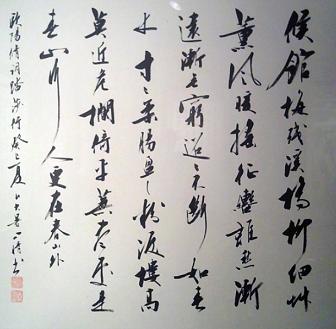 候館梅殘溪橋柳細艸
薰風暖搖征轡離愁漸
遠漸无窮迢迢不斷如春
水寸寸柔腸盈盈粉淚樓高
莫近危欄倚平蕪盡處是
春山行人更在春山外
歐陽脩詞踏莎行癸巳夏